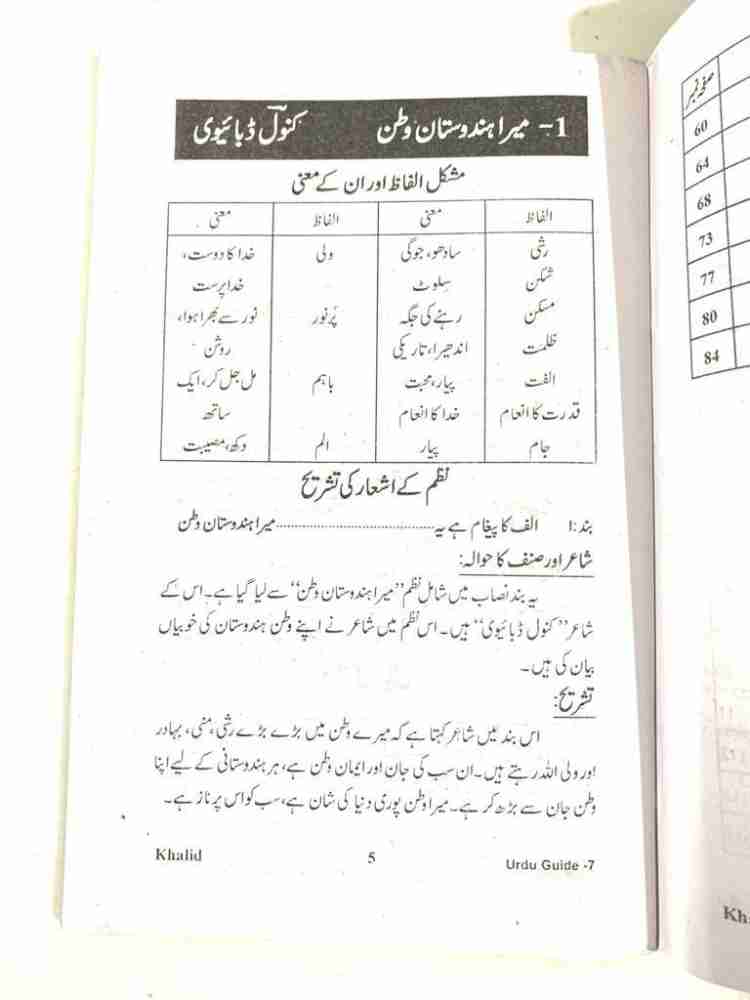 1- میرا ہندوستان وطن کنولؔ ڈبائیوی
مشکل الفاظ اور ان کے معنی
الفاظ معنی الفاظ معنی
رشی سادھو، جوگی ولی خدا کا دوست،
شکن سلوٹ خدا پرست
مسکن رہنے کی جگہ پُرنور نور سے بھرا ہوا،
ظلمت اندھیرا، تاریکی روشن
الفت پیار، محبت باہم مل جل کر، ایک
قدرت کا انعام خدا کا انعام ساتھ
جام پیار الم دکھ، مصیبت
نظم کے اشعار کی تشریح
بند:۱ الف کا پیغام ہے یہ.......................................میرا ہندوستان وطن
شاعر اور صنف کا حوالہ:
یہ بند نصاب میں شامل نظم ”میرا ہندوستان وطن“ سے لیا گیا ہے۔ اس کے
شاعر ”کنول ڈبائیوی“ ہیں۔ اس نظم میں شاعر نے اپنے وطن ہندوستان کی خوبیاں
بیان کی ہیں۔
تشریح:
اس بند میں شاعر کہتا ہے کہ میرے وطن میں بڑے بڑے رشی، منی، بہادر
اور ولی اللہ رہتے ہیں۔ ان سب کی جان اور ایمان وطن ہے، ہر ہندوستانی کے لیے اپنا
وطن جان سے بڑھ کر ہے۔ میرا وطن پوری دنیا کی شان ہے، سب کو اس پر ناز ہے۔
Khalid 5 Urdu Guide -7
صفحہ نمبر
60
64
68
73
77
80
84
Kha